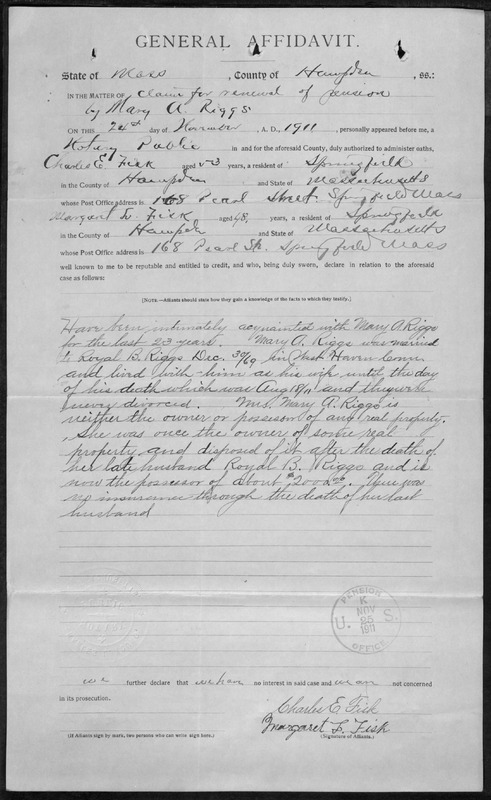 GENERAL AFFIDAVIT.
State of Mass, County of Hampden, ss.:
IN THE MATTER OF claim for renewal of pension
by Mary A. Riggs
ON THIS 24th day of November, A. D., 1911, personally appeared before me, a
Notary Public in and for the aforesaid County, duly authorized to administer oaths,
Charles E. Fisk aged 53 years, a resident of Springfield
in the County of Hampden and State of Massachusetts
whose Post Office address is 168 Pearl Street Springfield Mass
Margaret L. Fisk aged 48, years, a resident of Springfield
in the County of Hampden and State of Massachusetts
whose Post Office address is 168 Pearl St, Springfield Mass
well known to me to be reputable and entitled to credit, and who, being duly sworn, declare in relation to the aforesaid
case as follows:
[NOTE.—Affiants should state how they gain a knowledge of the facts to which they testify.]
Have been intimately acquainted with Mary A. Riggs
for the last 23 years. Mary A. Riggs was married
to Royal B. Riggs Dec. 30/69 in West Haven Conn
and lived with him as his wife until the day
of his death which was Aug 18/11 and they were
never divorced. Mrs. Mary A. Riggs is
neither the owner or possessor of any real property.
She was once the owner of some real
property and disposed of it after the death of
her late husband Royal B. Riggs and is
now the possessor of about $2000.00. There was
no insurance through the death of her last
husband
PENSION
K
NOV
25
1911
U. S.
OFFICE
we further declare that we have no interest in said case and we are not concerned
in its prosecution.
Charles E. Fisk
Margaret L. Fisk
(If Affiants sign by mark, two persons who can write sign here.)
(Signature of Affiants.)